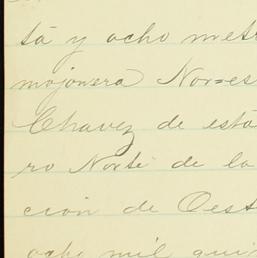 tá y ocho metr
mojonera Nor=es
Chavez de está
ro Norte de la
ción de Oest
ocho mil qui